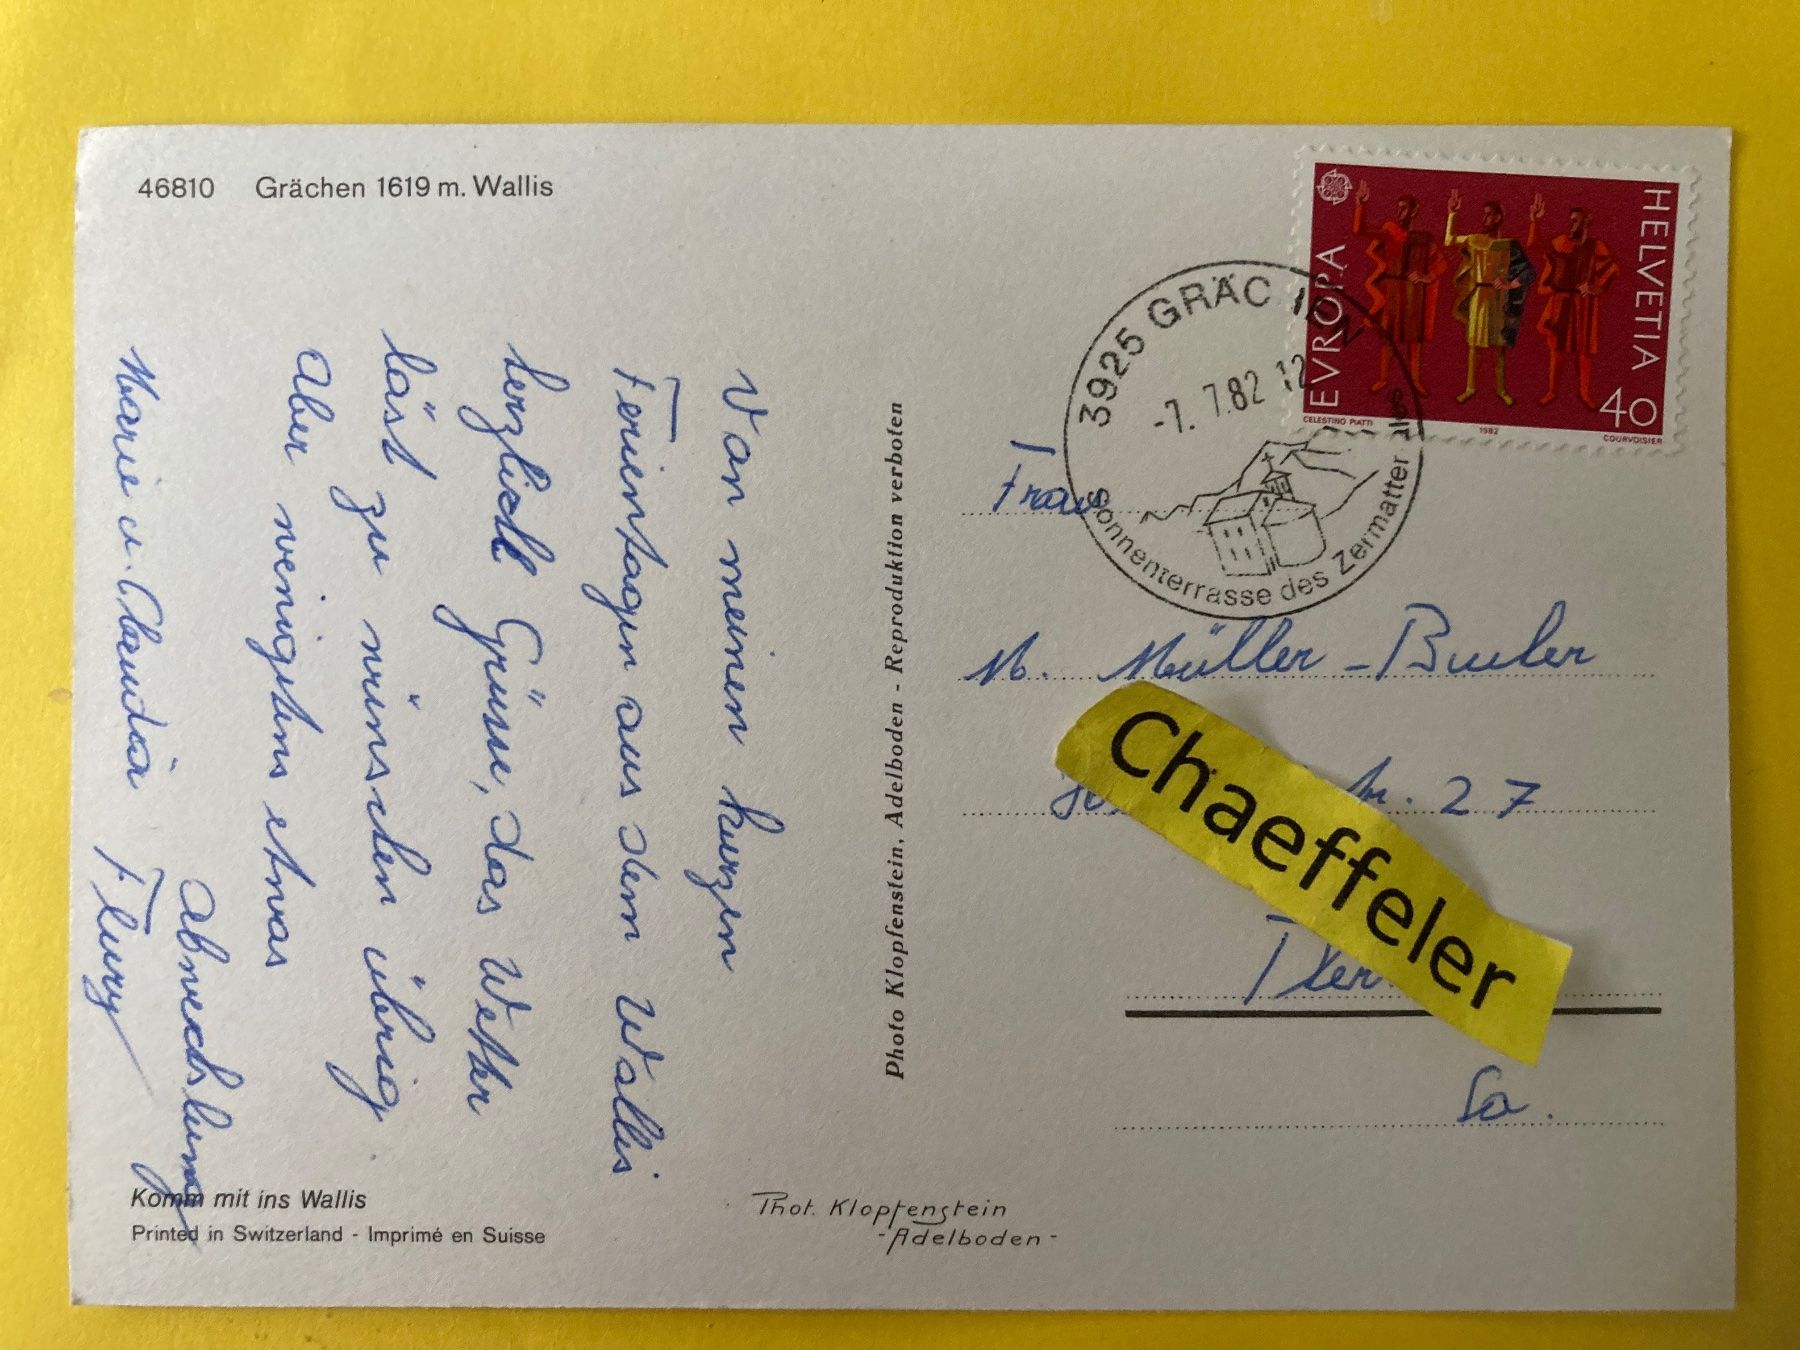 46810 Grächen 1619 m. Wallis
Von meinen kurzen
Ferientagen aus dem Wallis
herzlich Grüsse, das Wetter
läst zu wünschen übrig
aber wenigstens etwas
Abwechslung
Marie u. Claudia Flury
Komm mit ins Wallis
Printed in Switzerland - Imprimé en Suisse
Photo Klopfenstein, Adelboden - Reproduktion verboten
Phot. Klopfenstein
-Adelboden-
HELVETIA
EVROPA
40
CELESTINO PIATTI 1982 COURVOISIER
3925 GRÄCHEN
-7. 7.82 12
Sonnenterrasse des Zermatter
Frau
M. Müller-Bucher
27
Chaeffeler
So.